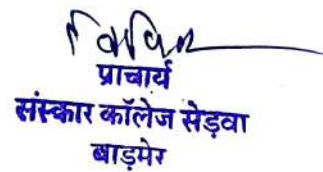 प्राचार्य
संस्कार कॉलेज सेड़वा
बाड़मेर